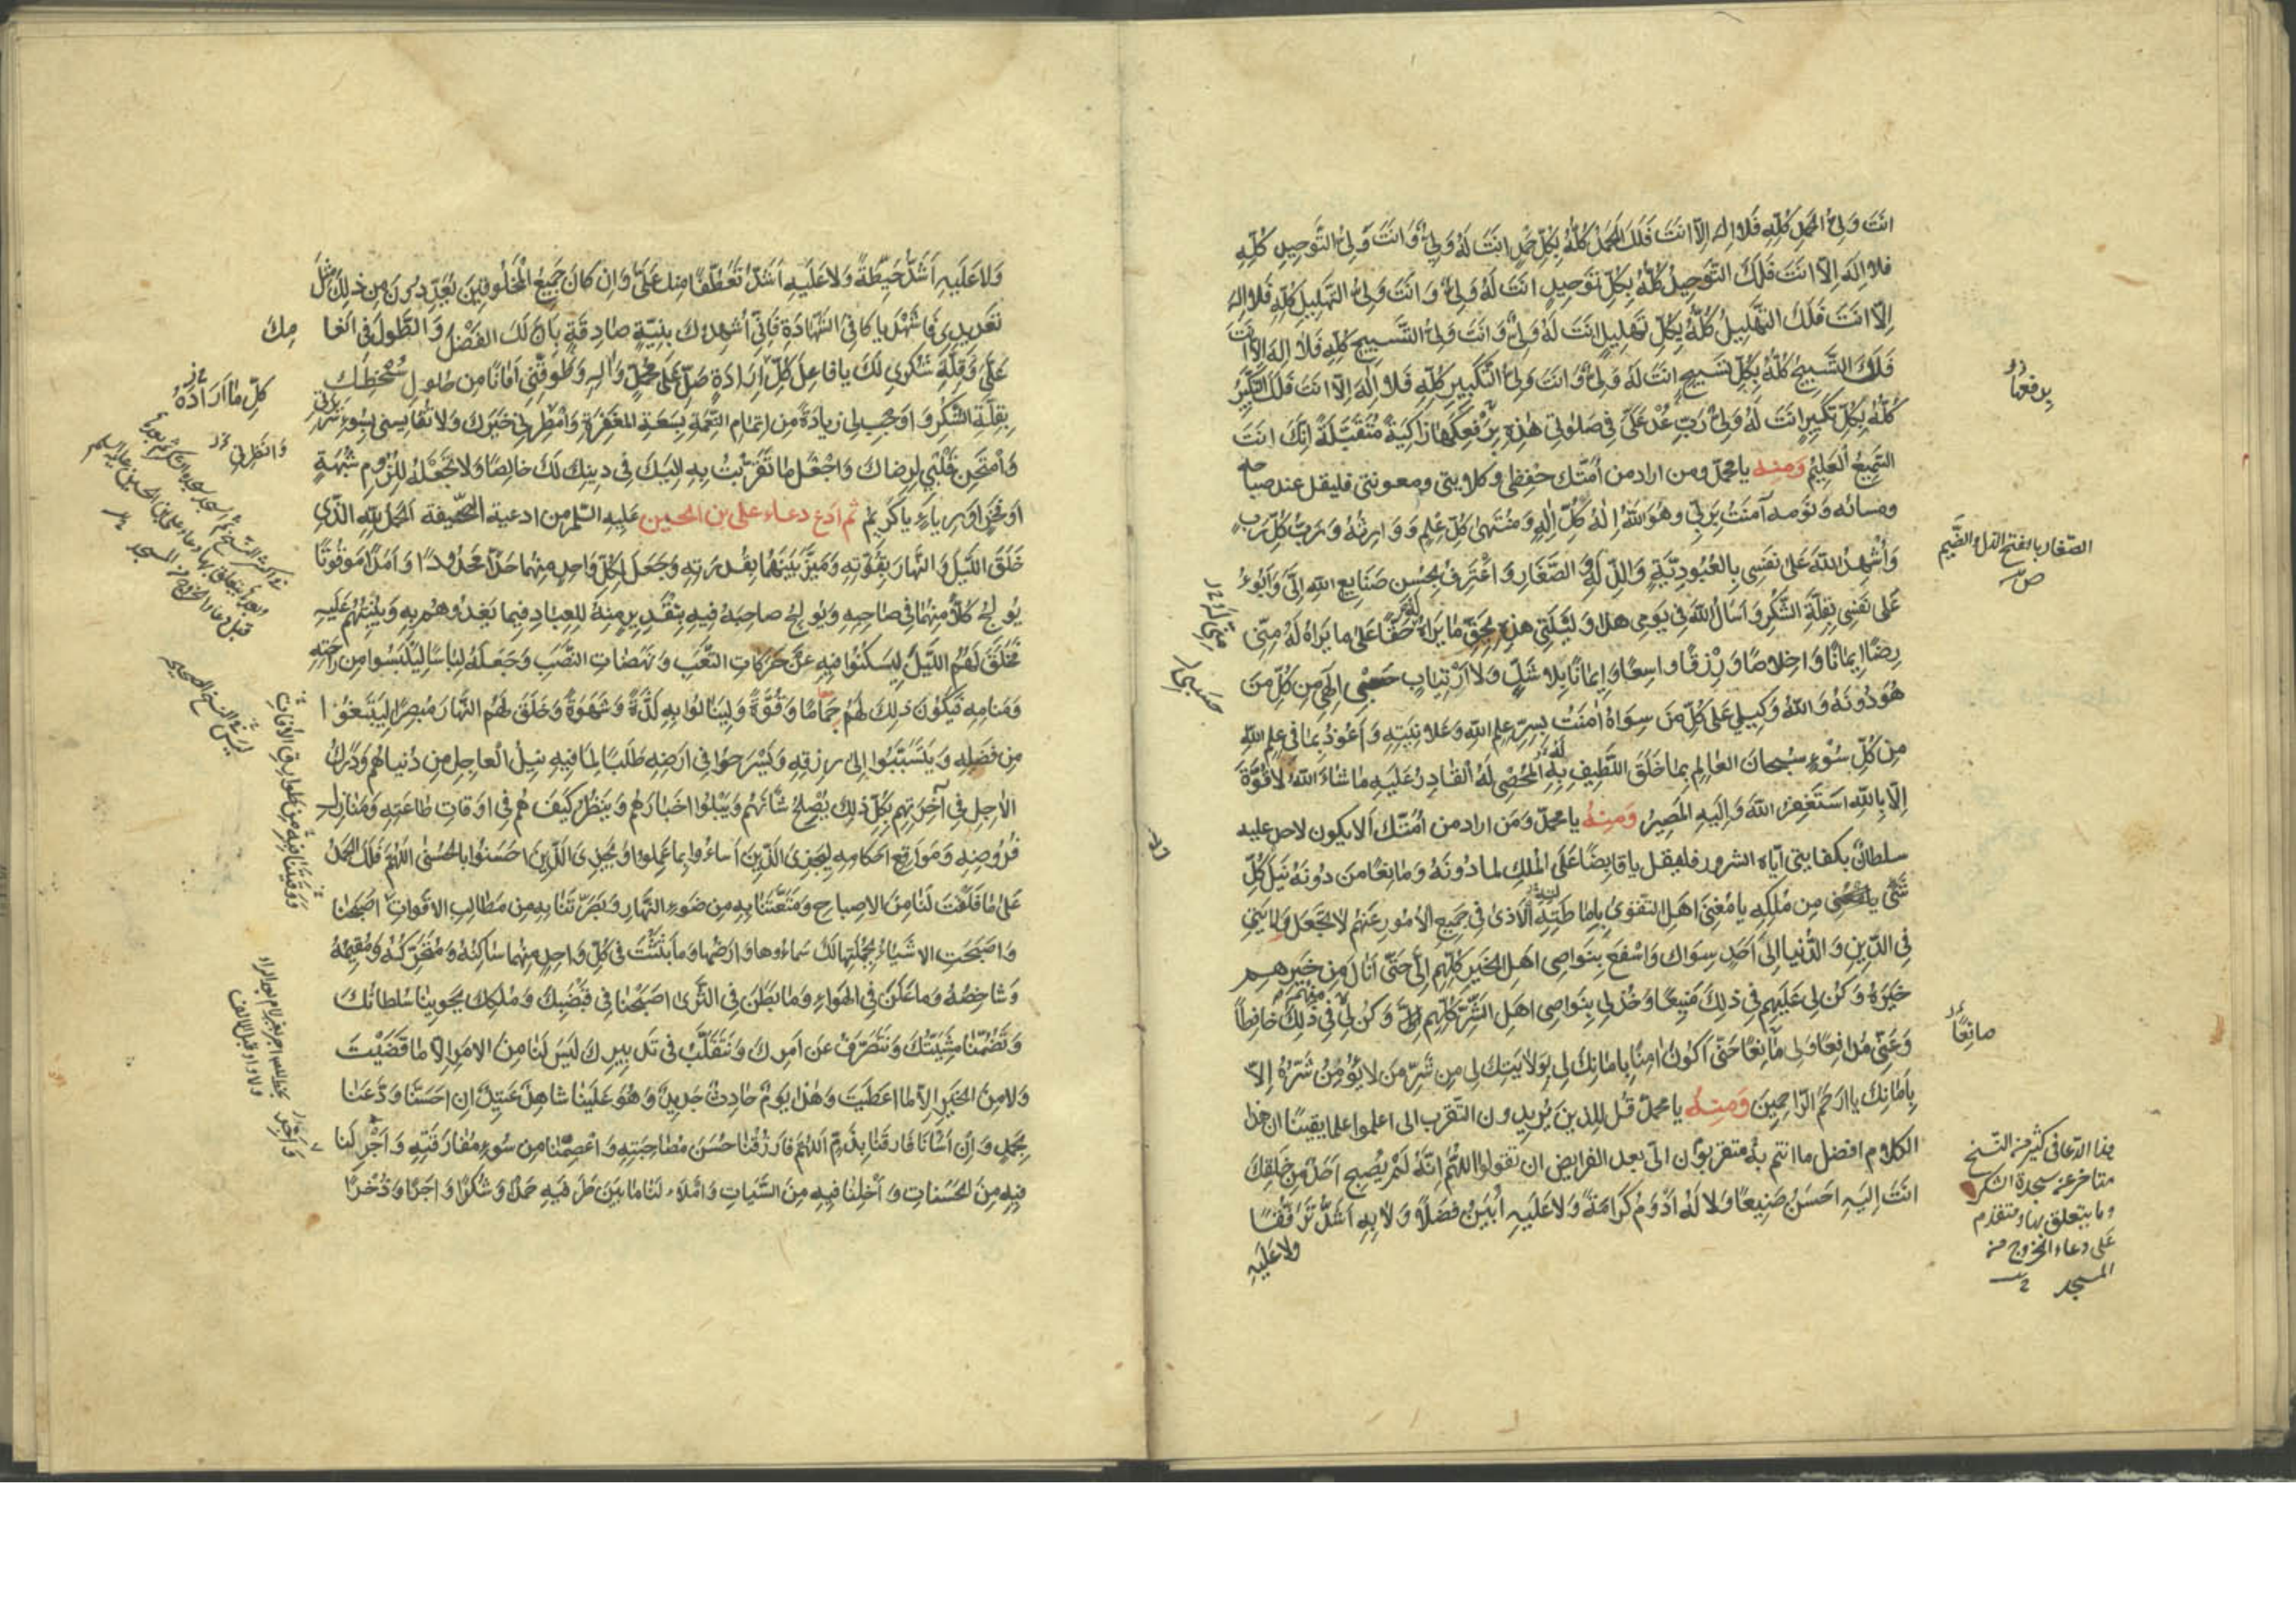 انتَ وَلِيُّ الحَمدِ كُلِّهِ فَلا اِلهَ اِلّا انتَ فَلَكَ الحَمدُ كُلُّهُ بِكُلِّ حَمدٍ انتَ لَهُ وَلِيٌّ وَانتَ وَلِيُّ التَّوحِيدِ كُلِّهِ
فلا اِلهَ اِلّا انتَ فَلَكَ التَّوحِيدُ كُلُّهُ بِكُلِّ تَوحِيدٍ انتَ لَهُ وَلِيٌّ وَ انتَ وَلِيُّ التَّهلِيلِ كُلِّهِ فَلا اِلهَ
اِلّا انتَ فَلَكَ التَّهلِيلُ كُلُّهُ بِكُلِّ تَهلِيلٍ انتَ لَهُ وَلِيٌّ وَ انتَ وَلِيُّ التَّسبِيحِ كُلِّهِ فَلا اِلهَ اِلّا انتَ
فَلَكَ التَّسبِيحُ كُلُّهُ بِكُلِّ تَسبِيحٍ انتَ لَهُ وَلِيٌّ وَ انتَ وَلِيُّ التَّكبِيرِ كُلِّهِ فَلا اِلهَ اِلّا انتَ فَلَكَ التَّكبِيرُ
كُلُّهُ بِكُلِّ تَكبِيرٍ انتَ لَهُ وَلِيٌّ رَبِّ عُدْ عَلَيَّ فِي صَلوتِي هذِهِ بِرَفْعِكَهَا زاكِيَةً مُتَقَبَّلَةً اِنَّكَ انتَ
السَّمِيعُ العَلِيمُ وَمِنهُ يا محمّد ومن اراد من اُمّتك حفظى وكلايتى ومعونتى فليقل عند صباحه
ومسائه ونومه آمَنتُ بِرَبِّي وهُوَ اللهُ اِلهُ كُلِّ اِلهٍ وَمُنتَهى كُلِّ عِلمٍ وَوَارِثُهُ وَرَبُّ كُلِّ رَبٍّ
وَأُشهِدُ اللهَ عَلى نَفسِي بِالعُبُودِيَّةِ وَالذِّلَّةِ وَ الصَّغَارِ وَ اعْتَرِفُ بِحُسنِ صَنَايِعِ اللهِ اِلَيَّ وَ اَبُوءُ
عَلى نَفسِي بِقِلَّةِ الشُّكرِ وَ اَسئَلُ اللهَ فِي يَومِي هذا وَ لَيلَتِي هذِهِ بِحَقِّ ما يَراهُ لَهُ حَقًّا عَلى ما يَراهُ لَهُ مِنِّي
رِضًا اِيمانًا وَ اِخلاصًا وَ رِزقًا واسِعًا وَ اِيمانًا بِلا شَكٍّ وَلا ارْتِيابٍ حَسبِي اِلهِي مِن كُلِّ مَن
هُوَ دُونَهُ وَ اللهُ وَكِيلِي عَلى كُلِّ مَن سِواهُ آمَنتُ بِسِرِّ عِلمِ اللهِ وَ عَلانِيَتِهِ وَ اَعُوذُ بِما فِي عِلمِ اللهِ
مِن كُلِّ سُوءٍ سُبحانَ العالِمِ بِما خَلَقَ اللَّطِيفِ بِهِ المُحصِي لَهُ القادِرِ عَلَيهِ ما شاءَ اللهُ لا قُوَّةَ
اِلّا بِاللهِ اَستَغفِرُ اللهَ وَ اِلَيهِ المَصِيرُ وَمِنهُ يا محمّد وَمَن اراد من اُمّتك اَلّا يكون لاحد عليه
سلطانٌ بكفايتى ايّاه الشرور فليقل يا قابِضًا عَلَى المُلكِ لما دُونَهُ وَ مانِعًا من دُونَهُ نَيلَ كُلِّ
شَيءٍ مِن مُلكِهِ يا مُغنِيَ اَهلِ التَّقوى بِاِماطَتِهِ الاَذى فِي جَمِيعِ الاُمُورِ عَنهُم لا تَجعَل وَلايَتِي
فِي الدِّينِ وَ الدُّنيا اِلى اَحَدٍ سِواكَ وَ اسْفَع بِنَواصِي اَهلِ الخَيرِ كُلِّهِم اِلَيَّ حَتّى اَنالَ مِن خَيرِهِم
خَيرَهُ وَ كُن لِي عَلَيهِم فِي ذلِكَ مُعِينًا وَ خُذ لِي بِنَواصِي اَهلِ الشَّرِّ كُلِّهِم وَ كُن لِي فِي ذلِكَ حافِظًا
وَ عَنِّي مُدافِعًا وَ لِي مانِعًا حَتّى اَكُونَ آمِنًا بِاَمانِكَ لِي بِوِلايَتِكَ لِي مِن شَرِّ مَن لا يُؤمَنُ شَرُّهُ اِلّا
بِاَمانِكَ يا اَرحَمَ الرّاحِمِينَ وَمِنهُ يا محمّدُ قُل لِلذينَ يُرِيدون التّقرب الى اعلموا علم يقينٍ ان هذا
الكلام افضل ما انتم به متقربون الىّ بعد الفرايض ان تقولوا اللهُمَّ اِنَّهُ لَم يُصبِح اَحَدٌ مِن خَلقِكَ
انتَ اِلَيهِ اَحسَنُ صَنِيعًا وَلا لَهُ اَدوَمُ كَرامَةً وَلا عَلَيهِ اَبيَنُ فَضلًا وَ لا بِهِ اَشَدُّ تَرَفُّقًا
ولا عَلَيهِ
يرفعها
الصّغار بالفتح الذل والضَّيم
ص
مانِعًا
هذا الدّعا فى كثير من النّسخ
متاخر عن سجدة الشكر
وما يتعلق بها ومتقدم
على دعاء الخروج من
المسجد
وَلا عَلَيهِ اَشَدُّ حِيطَةً وَلا عَلَيهِ اَشَدُّ تَعَطُّفًا مِنكَ عَلَيَّ وَ اِن كانَ جَمِيعُ المَخلُوقِينَ يُعَدِّدُونَ مِن ذلِكَ مِثلَ
تَعدِيدِي فَاشْهَد يا كافِيَ الشَّهادَةِ فَاِنِّي اُشهِدُكَ بِنِيَّةٍ صادِقَةٍ بِاَنَّ لَكَ الفَضلَ وَ الطَّولَ فِي اِنعامِكَ
عَلَيَّ وَ قِلَّةِ شُكرِي لَكَ يا فاعِلَ كُلِّ اِرادَةٍ صَلِّ عَلى مُحَمَّدٍ وَ آلِهِ وَ طَوِّقنِي اَمانًا مِن حُلُولِ سَخَطِكَ
بِقِلَّةِ الشُّكرِ وَ اَوجِب لِي زِيادَةً مِن اِتمامِ النِّعمَةِ بِسَعَةِ المَغفِرَةِ وَ اَمطِرنِي خَيرَكَ وَلا تُقايِسنِي بِسُوءِ سَرِيرَتِي
وَ امتَحِن قَلبِي لِرِضاكَ وَ اجعَل ما تَقَرَّبتُ بِهِ اِلَيكَ فِي دِينِكَ لَكَ خالِصًا وَلا تَجعَلهُ لِلُزُومِ شُبهَةٍ
اَو فَخرٍ اَو رِياءٍ يا كَرِيمُ ثم ادع دعاء على بن الحسين عَلَيهِ السّلم من ادعية الصَّحيفة الحَمدُ لِلّهِ الَّذِي
خَلَقَ اللَّيلَ وَ النَّهارَ بِقُوَّتِهِ وَ مَيَّزَ بَينَهُما بِقُدرَتِهِ وَ جَعَلَ لِكُلِّ واحِدٍ مِنهُما حَدًّا مَحدُودًا وَ اَمَدًا مَوقُوتًا
يُولِجُ كُلًّا مِنهُما فِي صاحِبِهِ وَ يُولِجُ صاحِبَهُ فِيهِ بِتَقدِيرٍ مِنهُ لِلعِبادِ فِيما يَغذُوهُم بِهِ وَ يُنشِئُهُم عَلَيهِ
فَخَلَقَ لَهُمُ اللَّيلَ لِيَسكُنُوا فِيهِ مِن حَرَكاتِ التَّعَبِ وَ نَهَضاتِ النَّصَبِ وَ جَعَلَهُ لِباسًا لِيَلبَسُوا مِن راحَتِهِ
وَ مَنامِهِ فَيَكُونَ ذلِكَ لَهُم جَمامًا وَ قُوَّةً وَ لِيَنالُوا بِهِ لَذَّةً وَ شَهوَةً وَ خَلَقَ لَهُمُ النَّهارَ مُبصِرًا لِيَبتَغُوا
مِن فَضلِهِ وَ يَتَسَبَّبُوا اِلى رِزقِهِ وَ يَسرَحُوا فِي اَرضِهِ طَلَبًا لِما فِيهِ نَيلُ العاجِلِ مِن دُنياهُم وَ دَرَكُ
الآجِلِ فِي آخِرَتِهِم بِكُلِّ ذلِكَ يُصلِحُ شَأنَهُم وَ يَبلُوا اَخبارَهُم وَ يَنظُرُ كَيفَ هُم فِي اَوقاتِ طاعَتِهِ وَ مَنازِلِ
فُرُوضِهِ وَ مَواقِعِ اَحكامِهِ لِيَجزِيَ الَّذِينَ اَساؤُا بِما عَمِلُوا وَ يَجزِيَ الَّذِينَ اَحسَنُوا بِالحُسنى اللهُمَّ فَلَكَ الحَمدُ
عَلى ما فَلَقتَ لَنا مِنَ الاِصباحِ وَ مَتَّعتَنا بِهِ مِن ضَوءِ النَّهارِ وَ بَصَّرتَنا بِهِ مِن مَطالِبِ الاَقواتِ اَصبَحنا
وَ اَصبَحَتِ الاَشياءُ بِجُملَتِها لَكَ سَماؤُها وَ اَرضُها وَ ما بَثَثتَ فِي كُلِّ واحِدٍ مِنهُما ساكِنُهُ وَ مُتَحَرِّكُهُ وَ مُقِيمُهُ
وَ شاخِصُهُ وَ ما عَلَنَ فِي الهَواءِ وَ ما بَطَنَ فِي الثَّرى اَصبَحنا فِي قَبضَتِكَ وَ مُلكِكَ يَحوِينا سُلطانُكَ
وَ تَضُمُّنا مَشِيَّتُكَ وَ نَتَصَرَّفُ عَن اَمرِكَ وَ نَتَقَلَّبُ فِي تَدبِيرِكَ لَيسَ لَنا مِنَ الاَمرِ اِلّا ما قَضَيتَ
وَلا مِنَ الخَيرِ اِلّا ما اَعطَيتَ وَ هذا يَومٌ حادِثٌ جَدِيدٌ وَ هُوَ عَلَينا شاهِدٌ عَتِيدٌ اِن اَحسَنّا وَدَّعَنا
بِحَمدٍ وَ اِن اَسَأنا فارَقَنا بِذَمٍّ اَللهُمَّ فَارزُقنا حُسنَ مُصاحَبَتِهِ وَ اعصِمنا مِن سُوءِ مُفارَقَتِهِ وَ اَجزِل لَنا
فِيهِ مِنَ الحَسَناتِ وَ اَخلِنا فِيهِ مِنَ السَّيِّئاتِ وَ املَأ لَنا ما بَينَ طَرَفَيهِ حَمدًا وَ شُكرًا وَ اَجرًا وَ ذُخرًا
كلِّ ما اَرادَهُ
وَ انظُرنِي
وَ وَقَيتَنا فِيهِ مِن طَوارِقِ الآفاتِ